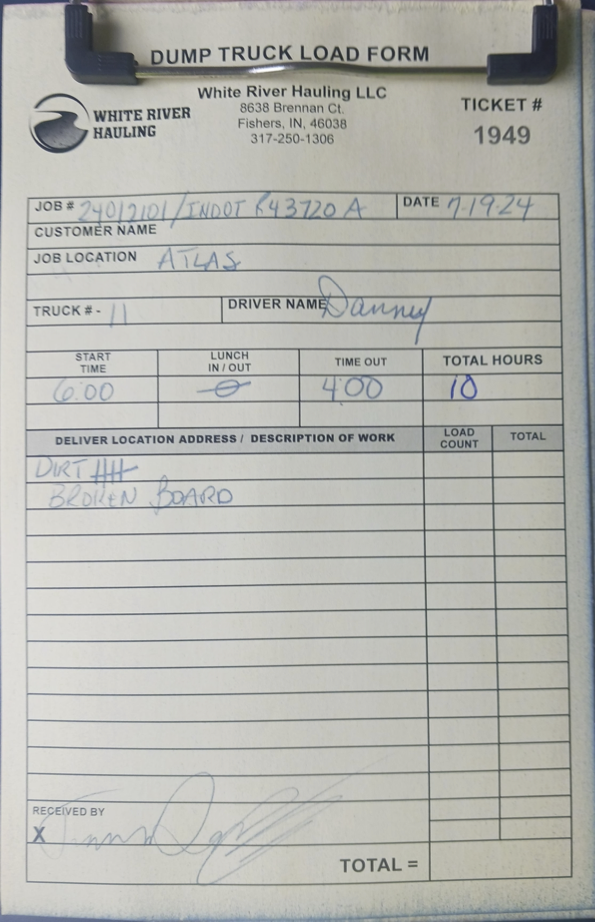 DUMP TRUCK LOAD FORM
White River Hauling LLC
8638 Brennan Ct.
Fishers, IN, 46038
317-250-1306
WHITE RIVER
HAULING
TICKET #
1949
JOB # 24012101/INDOT R43720 A DATE 7-19-24
CUSTOMER NAME
JOB LOCATION ATLAS
TRUCK # - 11 DRIVER NAME Danney
START TIME LUNCH IN / OUT TIME OUT TOTAL HOURS
6:00 0 4:00 10
DELIVER LOCATION ADDRESS / DESCRIPTION OF WORK LOAD COUNT TOTAL
DIRT
BROKEN BOARD
RECEIVED BY
X
TOTAL =